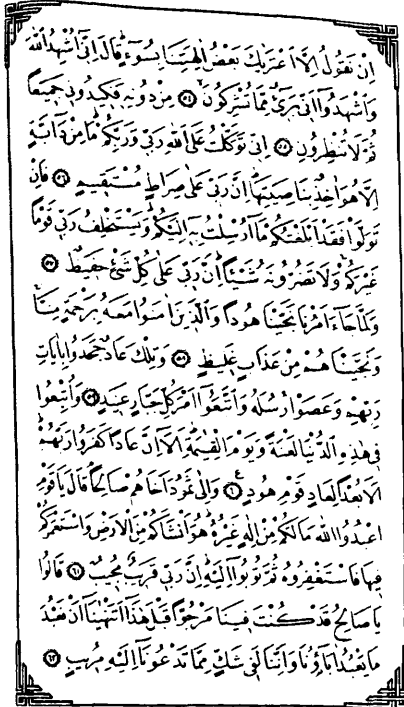 اِنْ نَقُولُ اِلَّا اعْتَرٰيكَ بَعْضُ اٰلِهَتِنَا بِسُوٓءٍۜ قَالَ اِنّ۪ٓي اُشْهِدُ اللّٰهَ
وَاشْهَدُٓوا اَنّ۪ي بَر۪ٓيءٌ مِمَّا تُشْرِكُونَۙ ﴿٥٤﴾ مِنْ دُونِه۪ فَك۪يدُون۪ي جَم۪يعاً
ثُمَّ لَا تُنْظِرُونِ ﴿٥٥﴾ اِنّ۪ي تَوَكَّلْتُ عَلَى اللّٰهِ رَبّ۪ي وَرَبِّكُمْۜ مَا مِنْ دَٓابَّةٍ
اِلَّا هُوَ اٰخِذٌ بِنَاصِيَتِهَاۜ اِنَّ رَبّ۪ي عَلٰى صِرَاطٍ مُسْتَق۪يمٍ ﴿٥٦﴾ فَاِنْ
تَوَلَّوْا فَقَدْ اَبْلَغْتُكُمْ مَٓا اُرْسِلْتُ بِه۪ٓ اِلَيْكُمْۜ وَيَسْتَخْلِفُ رَبّ۪ي قَوْماً
غَيْرَكُمْۚ وَلَا تَضُرُّونَهُ شَيْـٔاًۜ اِنَّ رَبّ۪ي عَلٰى كُلِّ شَيْءٍ حَف۪يظٌ ﴿٥٧﴾
وَلَمَّا جَٓاءَ اَمْرُنَا نَجَّيْنَا هُوداً وَالَّذ۪ينَ اٰمَنُوا مَعَهُ بِرَحْمَةٍ مِنَّاۚ
وَنَجَّيْنَاهُمْ مِنْ عَذَابٍ غَل۪يظٍ ﴿٥٨﴾ وَتِلْكَ عَادٌ جَحَدُوا بِاٰيَاتِ
رَبِّهِمْ وَعَصَوْا رُسُلَهُ وَاتَّبَعُٓوا اَمْرَ كُلِّ جَبَّارٍ عَن۪يدٍ ﴿٥٩﴾ وَاُتْبِعُوا
ف۪ي هٰذِهِ الدُّنْيَا لَعْنَةً وَيَوْمَ الْقِيٰمَةِۜ اَلَٓا اِنَّ عَاداً كَفَرُوا رَبَّهُمْۜ
اَلَا بُعْداً لِعَادٍ قَوْمِ هُودٍ۟ ﴿٦٠﴾ وَاِلٰى ثَمُودَ اَخَاهُمْ صَالِحاًۢ قَالَ يَا قَوْمِ
اعْبُدُوا اللّٰهَ مَا لَكُمْ مِنْ اِلٰهٍ غَيْرُهُۜ هُوَ اَنْشَاَكُمْ مِنَ الْاَرْضِ وَاسْتَعْمَرَكُمْ
ف۪يهَا فَاسْتَغْفِرُوهُ ثُمَّ تُوبُٓوا اِلَيْهِۜ اِنَّ رَبّ۪ي قَر۪يبٌ مُج۪يبٌ ﴿٦١﴾ قَالُوا
يَا صَالِحُ قَدْ كُنْتَ ف۪ينَا مَرْجُوًّا قَبْلَ هٰذَٓا اَتَنْهٰينَٓا اَنْ نَعْبُدَ
مَا يَعْبُدُ اٰبَٓاؤُ۬نَا وَاِنَّنَا لَف۪ي شَكٍّ مِمَّا تَدْعُونَٓا اِلَيْهِ مُر۪يبٍ ﴿٦٢﴾